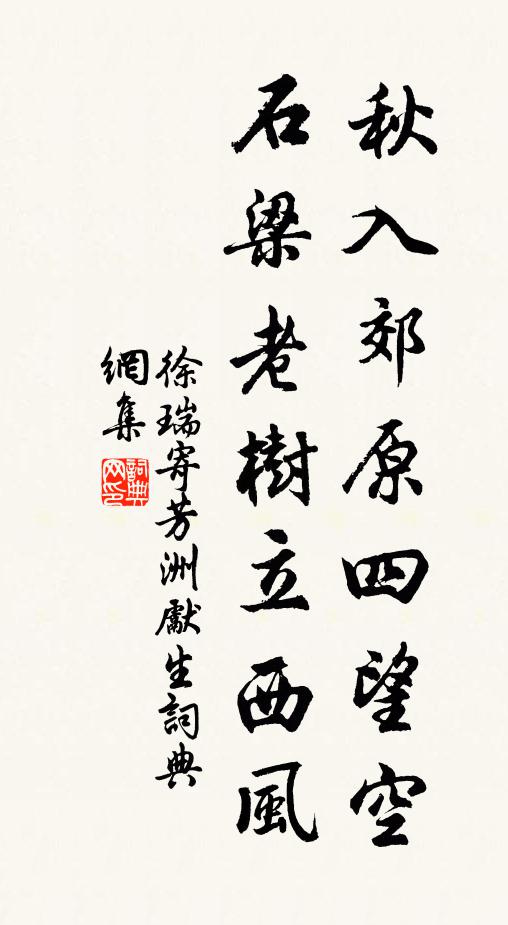 秋入郊原四望空
石梁老樹立西風
徐瑞寄芳洲獻生詞典
網集
詞典网印